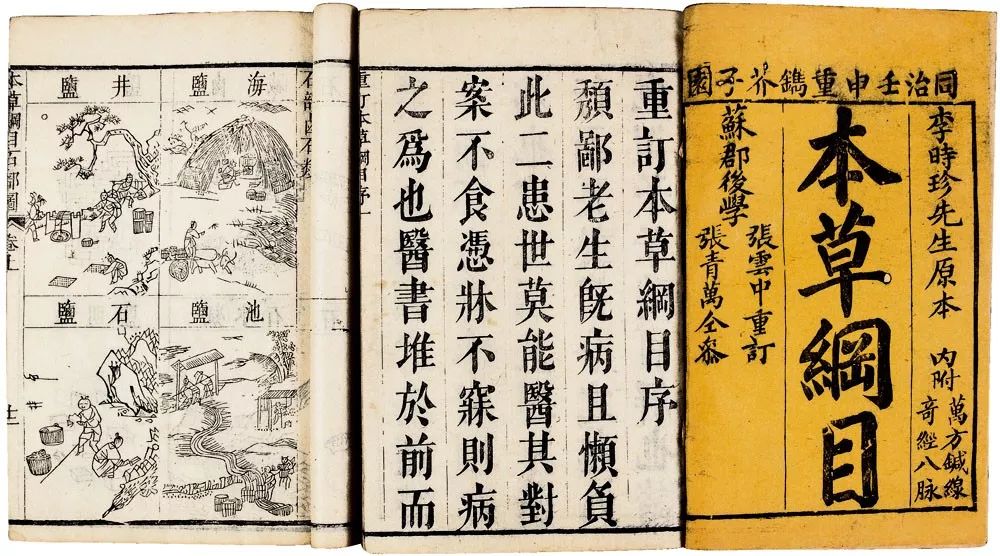 同治壬申重鐫芥子園
李時珍先生原本 內附萬方鍼線奇經八脉
本草綱目
蘇郡後學
張雲中重訂
張青萬仝參
重訂本草綱目序
頹鄙老生旣病且懶負
此二患世莫能醫其對
案不食憑牀不寐則病
之爲也醫書堆於前而
重訂本草綱目序一
海鹽
井鹽
池鹽
石鹽
本草綱目石部圖 卷上